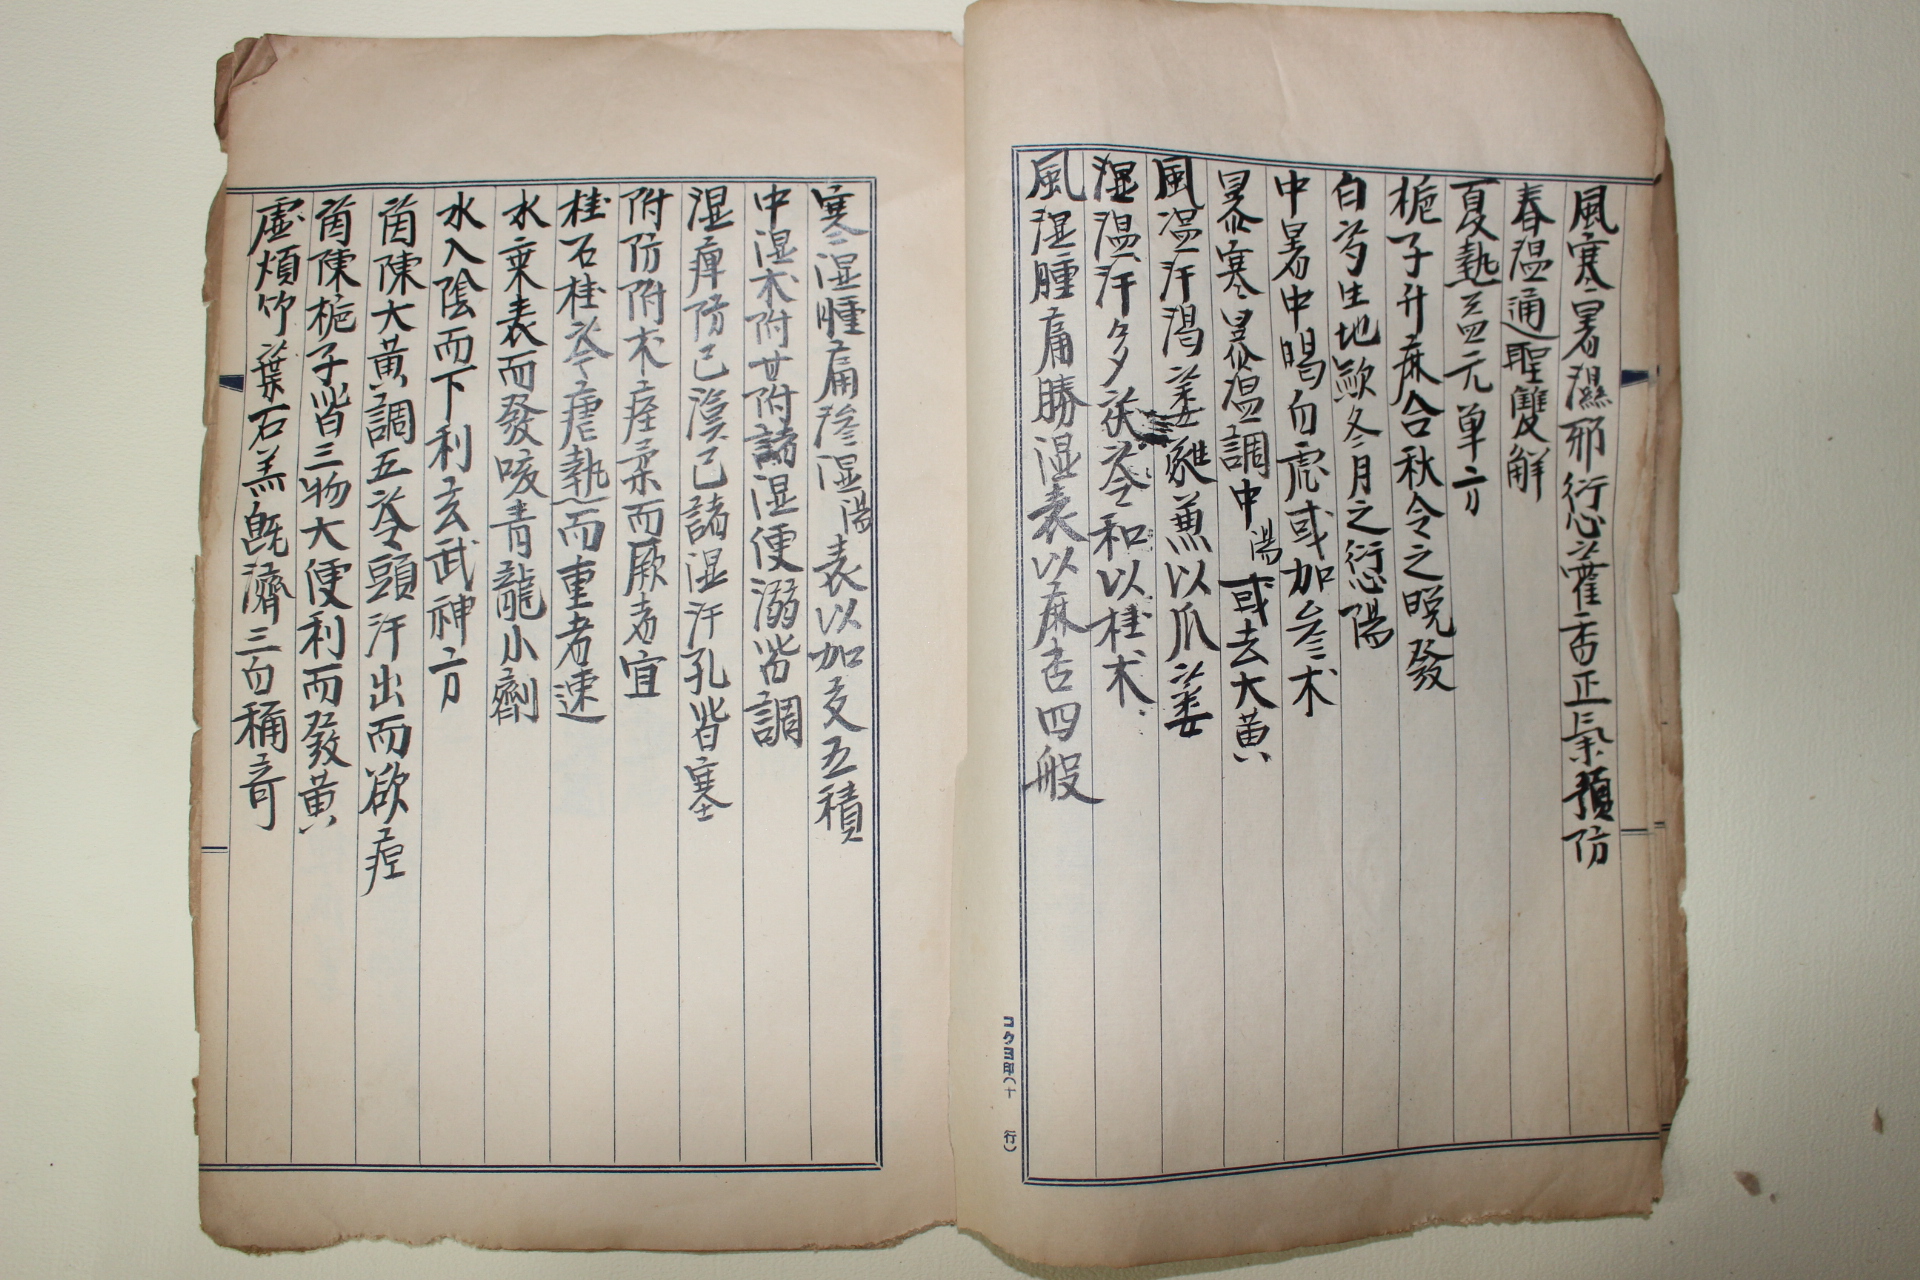 風寒暑濕邪衍愆藿香正氣預防
春温通聖雙解
夏熱三四元单方
梔子升麻合秋令之晩發
白芍生地歟冬月之衍愆陽
中暑中暍白虎或加参术
暴寒暴温調中湯或去大黄
風温汗渇姜蕤薫以爪蔞
湿温汗多茯苓和以桂术
風湿腫痛勝湿表以麻杏四般
コクヨ印(十行)
寒湿腫痛滲湿湯表以加交五積
中湿术附甘附諸湿便溺皆調
湿痺防己漢己諸湿汗孔皆塞
附防附术痓柔而厥者宜
桂石桂苓瘧熱而重者速
水乗表而發咳青龍小劑
水入陰而下利玄武神方
茵陳大黄調五苓頭汗出而欲疸
茵陳梔子皆三物大便利而發黄
虚煩竹葉石羔既濟三白稱奇